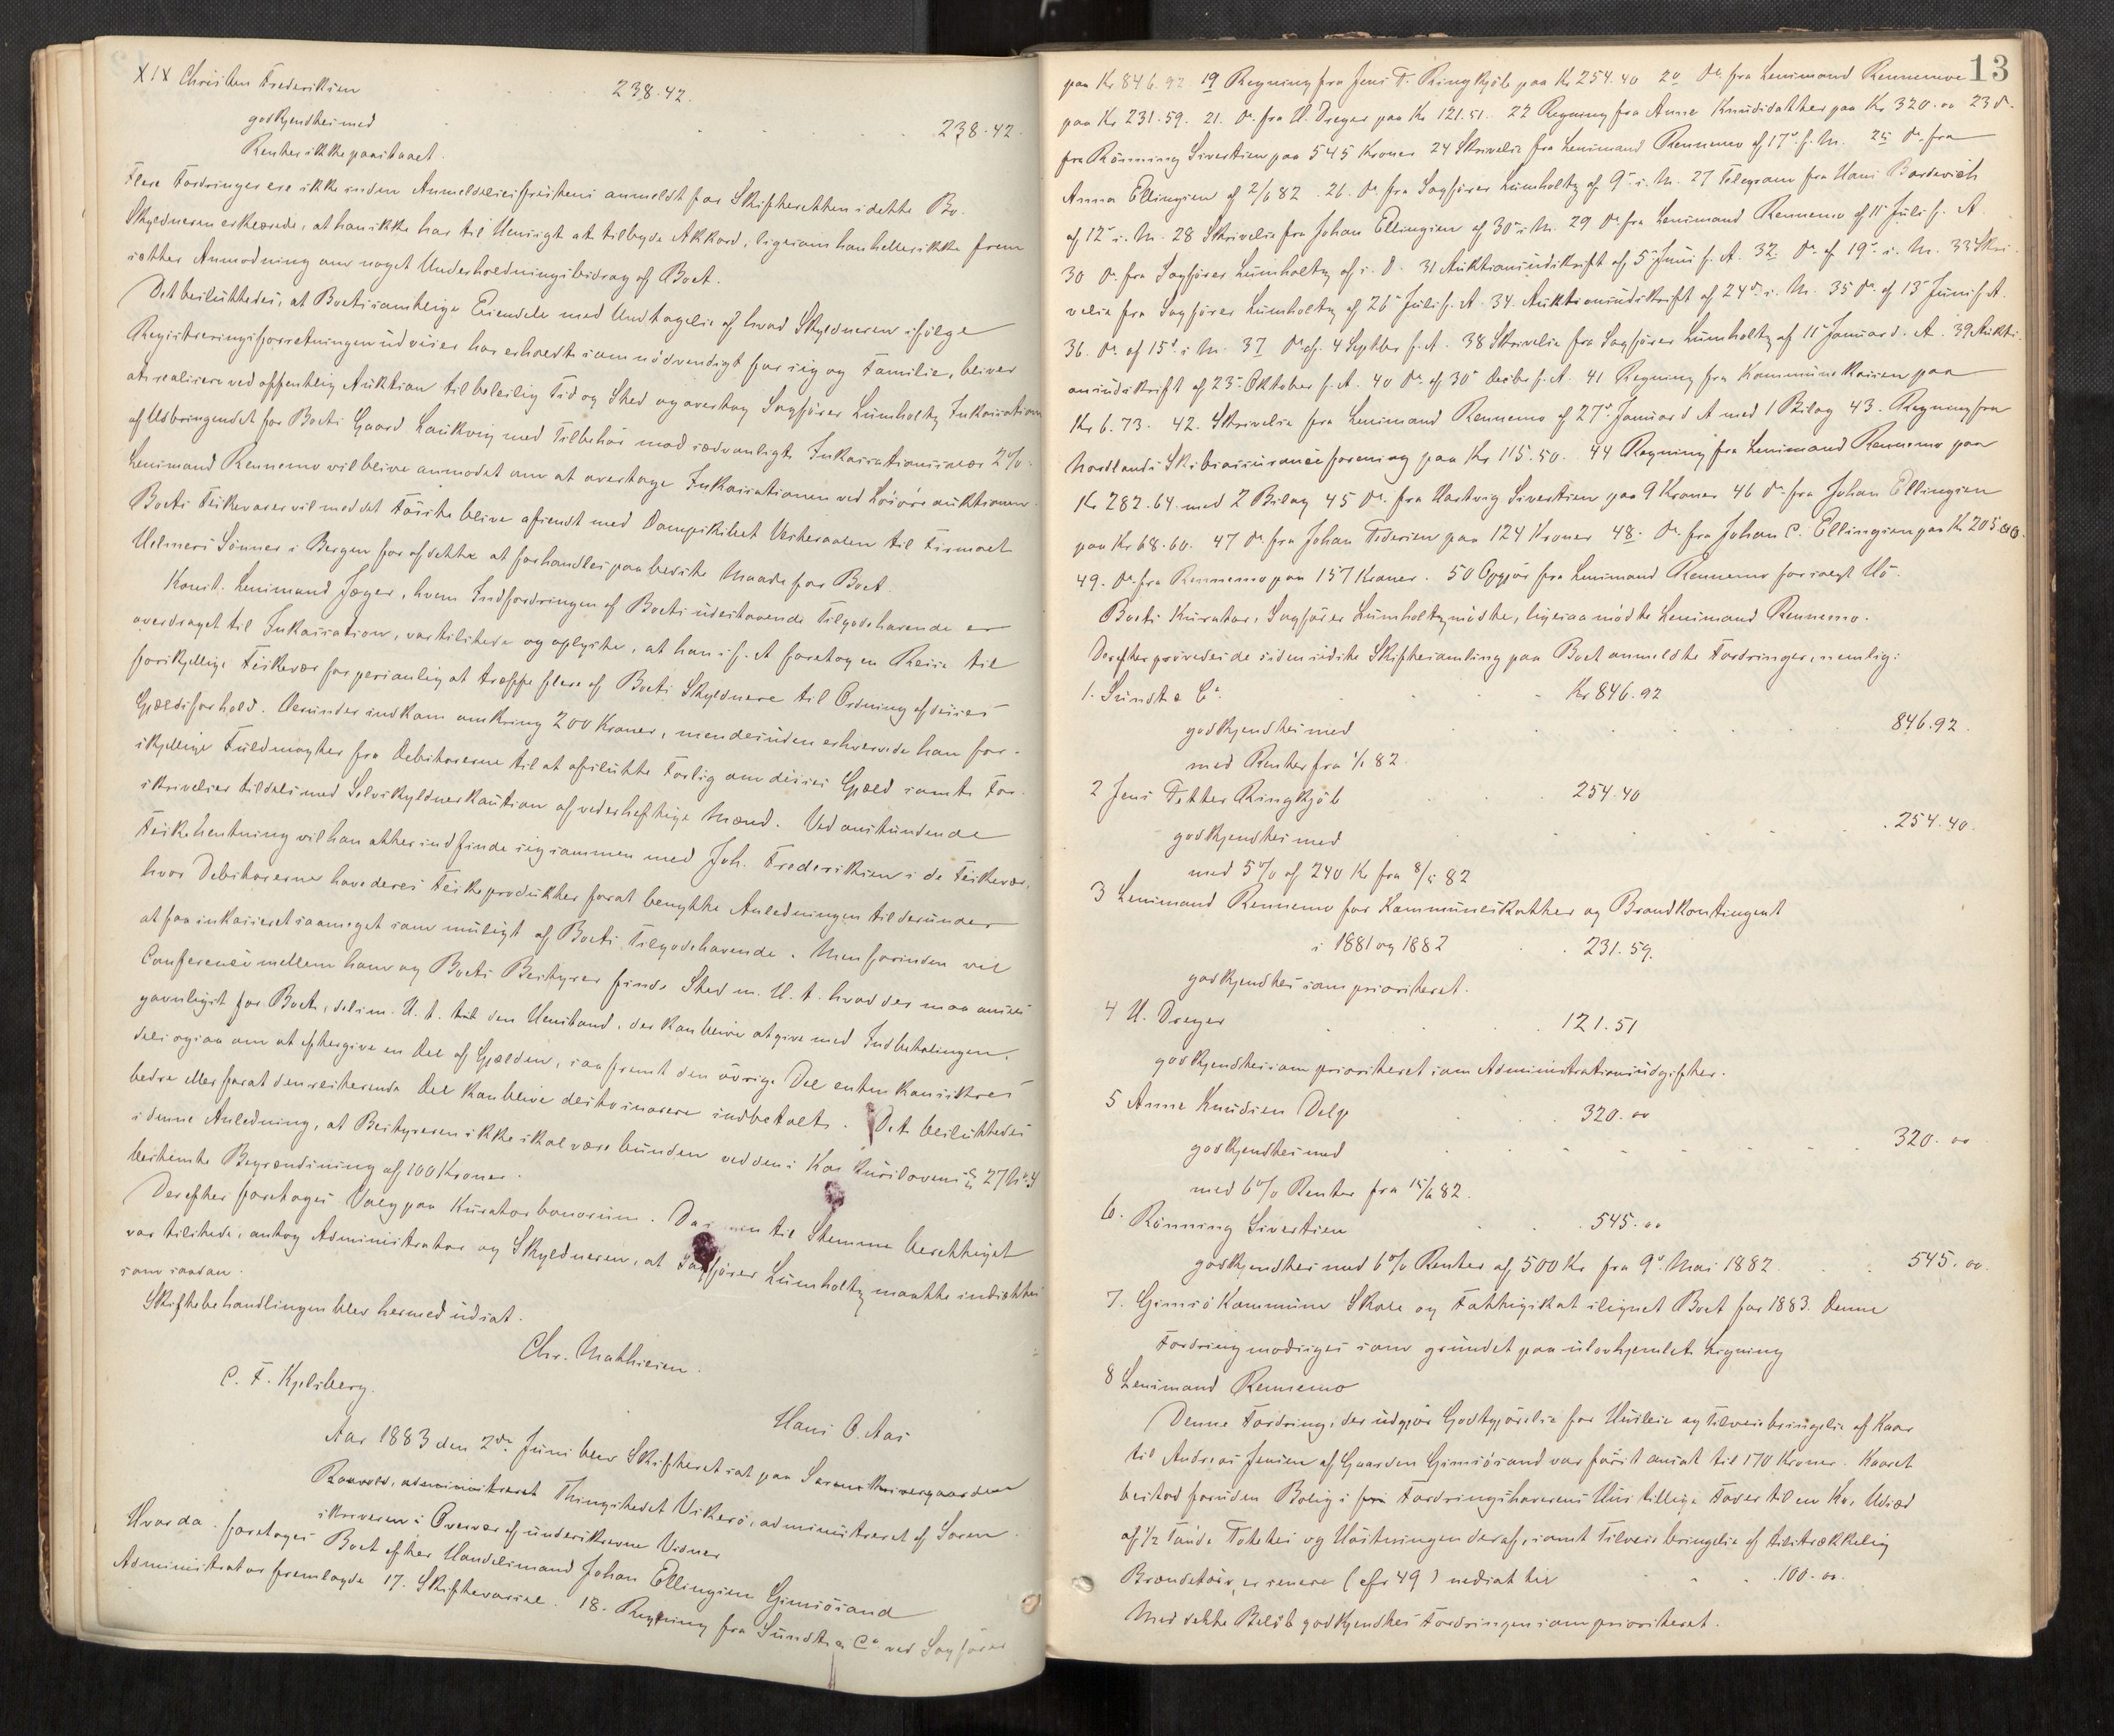 XIX Christen Frederiksen 238.42.
godkjendtes med 238.42.
Renter ikke paastaaet.
Flere Fordringer ere ikke inden Anmeldelsesfristens anmeldt for Skifteretten i dette Bo.
Skyldneren erklærede, at han ikke har til Hensigt at tilbyde Akkord, ligesom han heller ikke frem
sætter Anmodning om noget Underholdningsbidrag af Boet.
Det besluttedes, at Boets samtlige Eiendele med Undtagelse af hvad Skyldneren ifølge
Registreringsforretningen udvises har erholdt som nødvendigt for sig og Familie, bliver
at realisere ved offentlig Auktion til beleilig Tid og Sted og overtog Sagfører Lumholtz Inkassation
af Udbringendet for Boets Gaard Laukvig med Tilbehør mod sædvanligt Inkassationssalær 2%.
Lensmand Rennemo vil blive anmodet om at overtage Inkassationen ved Løsøreauktionen.
Boets Fiskevarer vil med det Første blive afsendt med Dampskibet Vesteraalen til Firmaet
Helmers Sønner i Bergen for af dette at forhandles paa bedste Maade for Boet.
Konst. Lensmand Jæger, hvem Indfordringen af Boets udestaaende Tilgodehavende er
overdraget til Inkassation, var tilstede og oplyste, at han i f. A foretog en Reise til
forskjellige Fiskevær for personlig at træffe flere af Boets Skyldnere til Ordning af disses
Gjældsforhold. Derunder indkom omkring 200 Kroner, men desuden erhvervede han for-
skjellige Fuldmagter fra Debitorerne til at afslutte Forlig om disses Gjæld samt For-
skrivelser tildels med Selvskyldnerkaution af vederheftige Mænd. Ved anstundende
Fiskehentning vil han atter indfinde sig sammen med Joh. Frederiksen i de Fiskevær,
hvor Debitorerne have deres Fiskeprodukter for at benytte Anledningen til derunder
at faa inkasseret saameget som muligt af Boets Tilgodehavende. Men forinden vil
Conferencer mellem ham og Boets Bestyrer finde Sted m. H. t. hvad der maa ansees
gavnligst for Boet, dels m. H. t. til den Henstand, der kan blive at give med Indbetalingen,
dels ogsaa om at eftergive en Del af Gjælden, saafremt den øvrige Del enten kan sikres
bedre eller for at den resterende Del kan blive desto snarere indbetalt. Det besluttedes
i denne Anledning, at Bestyreren ikke skal være bunden ved den i Konkursloven § 27 No 4
bestemte Begrændsning af 100 Kroner.
Derefter foretoges Valg paa Kurator bonorum. Da ingen til Stemme berettiget
var tilstede, antog Administrator og Skyldneren, at Sagfører Lumholtz maatte indsættes
som saadan.
Skiftebehandlingen blev hermed udsat.
Chr. Mathiesen.
C. F. Kjelsberg.
Hans O. Aas
Aar 1883 den 2den Juni blev Skifteret sat paa Sorenskrivergaarden
administreret Thingstedet Vikerø, administreret af Soren
skriveren i Overvær af underskrevne Vidner
Hvor da: foretoges Boet efter Handelsmand Johan Ellingsen Gimsøsand
Administrator fremlagde 17. Skiftevarsel. 18. Regning fra Sundt & Co ved Sagfører
13
paa Kr 846.92 19 Regning fra Jens F. Ringkjøb paa Kr 254.40 20 Do fra Lensmand Rennemo
paa Kr 231.59. 21. Do fra H. Dreyer paa Kr 121.51. 22 Regning fra Anne Knudsdatter paa Kr 320.00 23 Do
fra Rønning Sivertsen paa 545 Kroner 24 Skrivelse fra Lensmand Rennemo af 17de f. M. 25 Do fra
Anna Ellingsen af 2/6 82. 26. Do fra Sagfører Lumholtz af 9de s. M. 27 Telegram fra Hans Bordevich
af 12te s. M. 28 Skrivelse fra Johan Ellingsen af 30te s. M. 29 Do fra Lensmand Rennemo af 11te Juli f. A.
30 Do fra Sagfører Lumholtz af s. D. 31 Auktionsudskrift af 5te Juni f. A. 32. Do af 19de s. M. 33 Skri-
velse fra Sagfører Lumholtz af 26de Juli f. A. 34. Auktionsudskrift af 24de s. M. 35 Do af 13de Juni f. A.
36. Do af 15de s. M. 37 Do af 4 Septbr f. A. 38 Skrivelse fra Sagfører Lumholtz af 11te Januar d. A. 39 Aukti-
onsudskrift af 23de Oktober f. A. 40 Do af 30te Decbr f. A. 41 Regning fra Kommunekassen paa
Kr 6.73. 42. Skrivelse fra Lensmand Rennemo af 27de Januar d A med 1 Bilag 43. Regning fra
Nordlands Skibsassuranceforening paa Kr 115.50. 44 Regning fra Lensmand Rennemo paa
Kr 282.64 med 2 Bilag 45 Do fra Hartvig Sivertsen paa 9 Kroner 46 Do fra Johan Ellingsen
paa Kr 68.60. 47 Do fra Johan Pedersen paa 124 Kroner 48. Do fra Johan C. Ellingsen paa Kr 205.00.
49. Do fra Rennemo paa 157 Kroner. 50 Opgjør fra Lensmand Rennemo for solgt Hø.
Boets Kurator, Sagfører Lumholtz mødte, ligesaa mødte Lensmand Rennemo.
Derefter prøvedes de siden sidste Skiftesamling paa Boet anmeldte Fordringer, nemlig:
1. Sundt & Co. Kr 846.92
godkjendtes med 846.92.
med Renter fra 1/1 82.
2 Jens Fetter Ringkjøb 254.40
godkjendtes med 254.40.
med 5% af 240 Kr fra 8/5 82
3 Lensmand Rennemo for Kommuneskatter og Brandkontingent
i 1881 og 1882 231.59.
godkjendtes som prioriteret.
4 H. Dreyer 121.51
godkjendtes som prioriteret som Administrationsudgifter.
5 Anne Knudsen Delp 320.00
godkjendtes med 320.00
med 6% Renter fra 15/6 82.
6. Rønning Sivertsen 545.00
godkjendtes med 6% Renter af 500 Kr fra 9de Mai 1882 545.00
7. Gimsø Kommune Skole og Fattigskat ilignet Boet for 1883. Denne
Fordring modsiges som grundet paa ulovhjemlet Ligning
8 Lensmand Rennemo
Denne Fordring, der udgjør Godtgjørelse for Husleie og Tilveiebringelse af Kaar
til Andreas Jensen af Gaarden Gimsøsand var først ansat til 170 Kroner. Kaaret
bestod foruden Bolig i Fordringshaverens Hus tillige Foder til en Ko, Udsæd
af 1/2 Tønde Poteter og Høstningen deraf, samt Tilveiebringelse af tilstrækkelig
Brændetørv, er senere (cfr 49) nedsat til 100.00.
Med dette Beløb godkjendtes Fordringen som prioriteret.